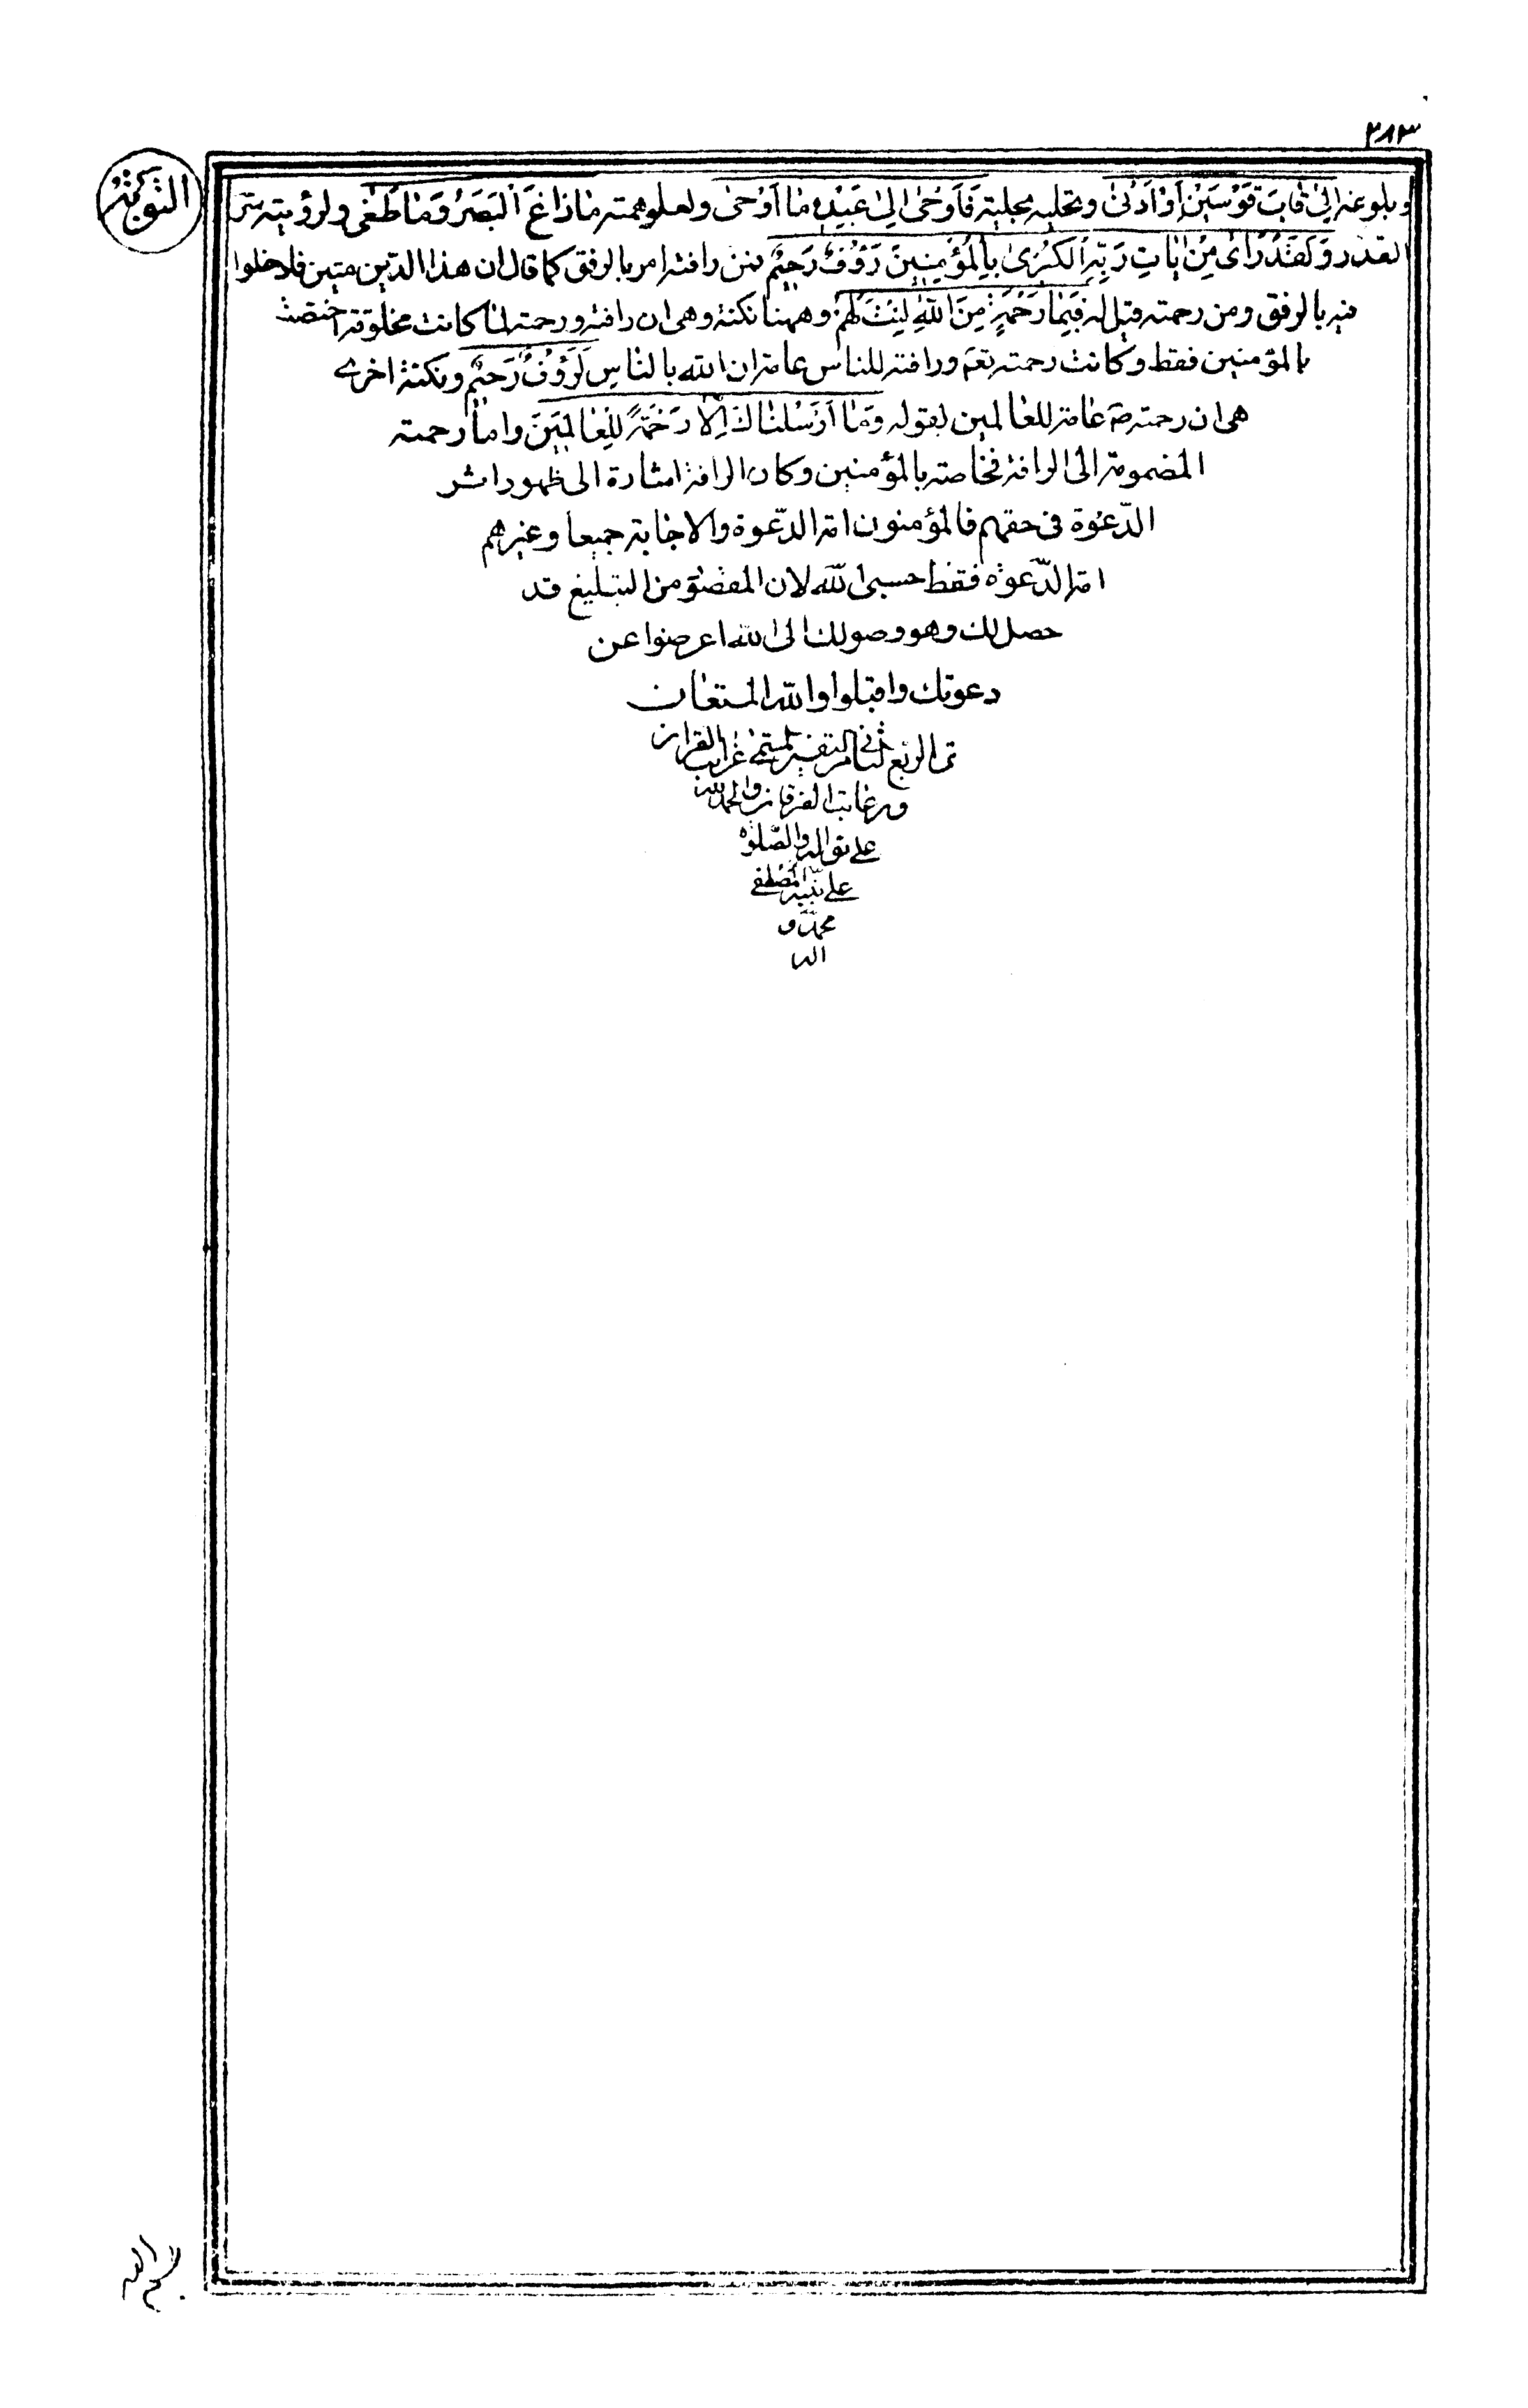 ٢٨٣
التوبة
وبلوغه إِلىٰ قٰابَ قَوْسَيْنِ أَوْ أَدْنىٰ وتجليه بجلية فَأَوْحىٰ إِلىٰ عَبْدِهِ مٰا أَوْحىٰ ولعلو همته مٰا زٰاغَ الْبَصَرُ وَمٰا طَغىٰ ولرؤيته سر
القدر وَلَقَدْ رَأىٰ مِنْ اٰيٰاتِ رَبِّهِ الْكُبْرىٰ بِالْمُؤْمِنِينَ رَؤُفٌ رَحِيمٌ فمن رافته امر بالرفق كما قال ان هذا الدّين متين فادخلوا
فيه بالرفق ومن رحمته قيل له فَبِمٰا رَحْمَةٍ مِنَ اللّٰهِ لِنْتَ لَهُمْ وههنا نكتة وهى ان رافته ورحمته لمّا كانت مخلوقة اختصت
بالمؤمنين فقط وكانت رحمته تعم ورافته للناس عامة ان اللّه بالنّاسِ لَرَؤُفٌ رَحيمٌ ونكتة اخرى
هى ان رحمته ص عامة للعالمين لقوله وَمٰا أَرْسَلْنٰاكَ إِلّٰا رَحْمَةً لِلْعٰالَمِينَ واما رحمته
المضمومة الى الرافة فخاصة بالمؤمنين وكان الرافة اشارة الى ظهور اثر
الدّعوة فى حقهم فالمؤمنون امة الدّعوة والاجابة جميعا وغيرهم
امة الدّعوة فقط حسبى اللّه لان المقصود من التبليغ قد
حصل لك وهو وصولك الى اللّه اعرضوا عن
دعوتك واقبلوا واللّه المستعان
تم الربع الثانى من التفسير المسمى غرائب القران
ورغائب الفرقان والحمد للّه
على نواله والصّلوة
على نبيّه المصطفى
محمّد و
اله
بسم الله